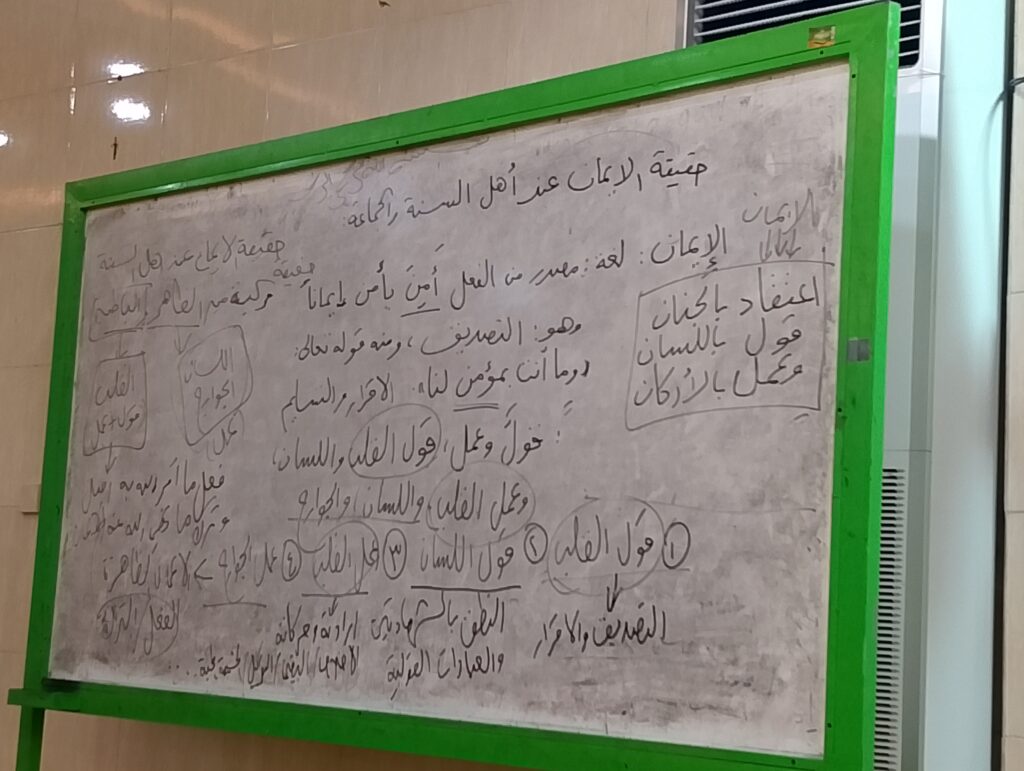 حقيقة الإيمان عند أهل السنة والجماعة:
الإيمان
الإيمان: لغة: مصدر من الفعل أَمِنَ يأمن إيماناً
وهو: التصديق، ومنه قوله تعالى:
وما أنت بمؤمن لنا، الاقرار والتسليم
: قول وعمل، قول القلب واللسان،
وعمل القلب واللسان والجوارح
اعتقاد بالجنان
قول باللسان
وعمل بالأركان
حقيقة الإيمان عند أهل السنة
حقيقة مركبة من الظاهر
اللسان
الجوارح
عمل
القلب
قول وعمل
فعل ما أمر الله به
وترك ما نهى الله عنه
① قول القلب ② قول اللسان ③ عمل القلب ④ عمل الجوارح > الاعمال الظاهرة
التصديق والاقرار
النطق بالشهادتين
والعبادات القولية
ارادته وحركاته
الفعل / الترك